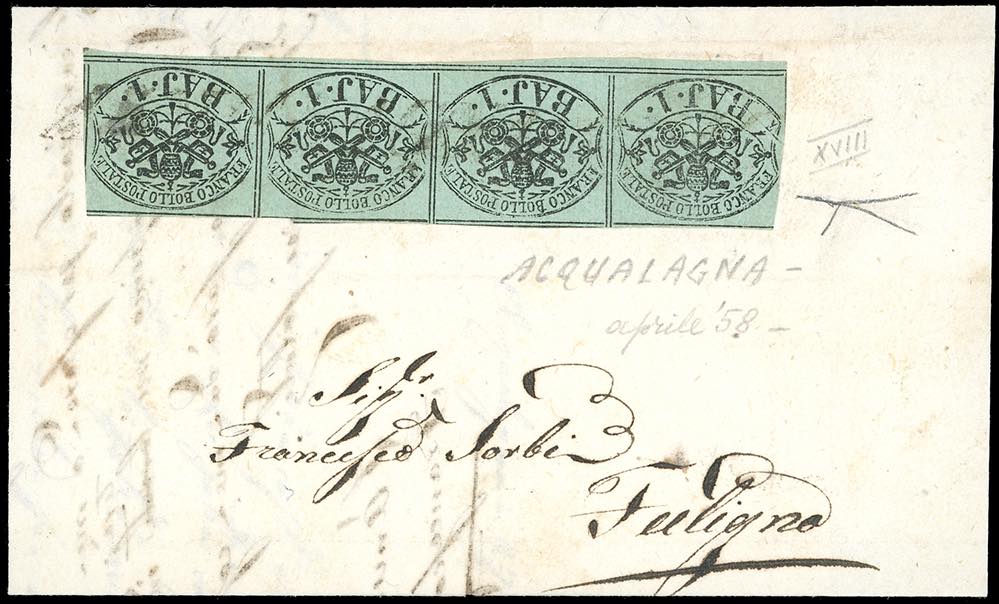 BAJ·1· BAJ·1· BAJ·1· BAJ·1·
FRANCO BOLLO POSTALE FRANCO BOLLO POSTALE FRANCO BOLLO POSTALE FRANCO BOLLO POSTALE
XVIII
ACQUALAGNA -
aprile '58 -
Sigr.
Francesco Sorbi
Fuligno